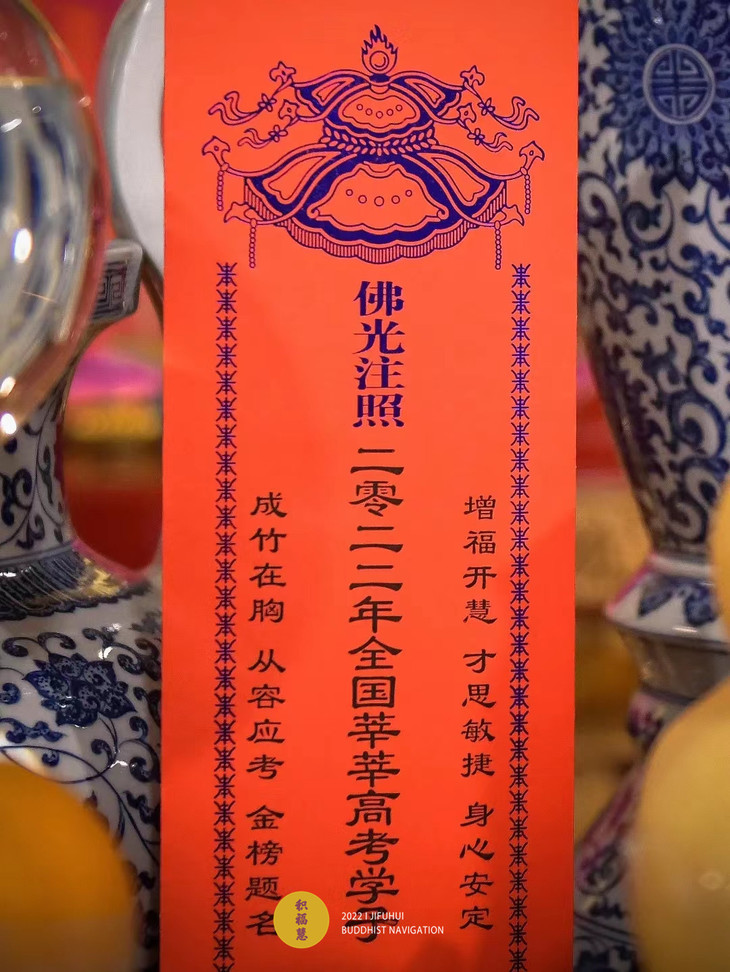 佛光注照
二零二二年全国莘莘高考学子
增福开慧 才思敏捷 身心安定
成竹在胸 从容应考 金榜题名
积福慧
2022 | JIFUHUI
BUDDHIST NAVIGATION